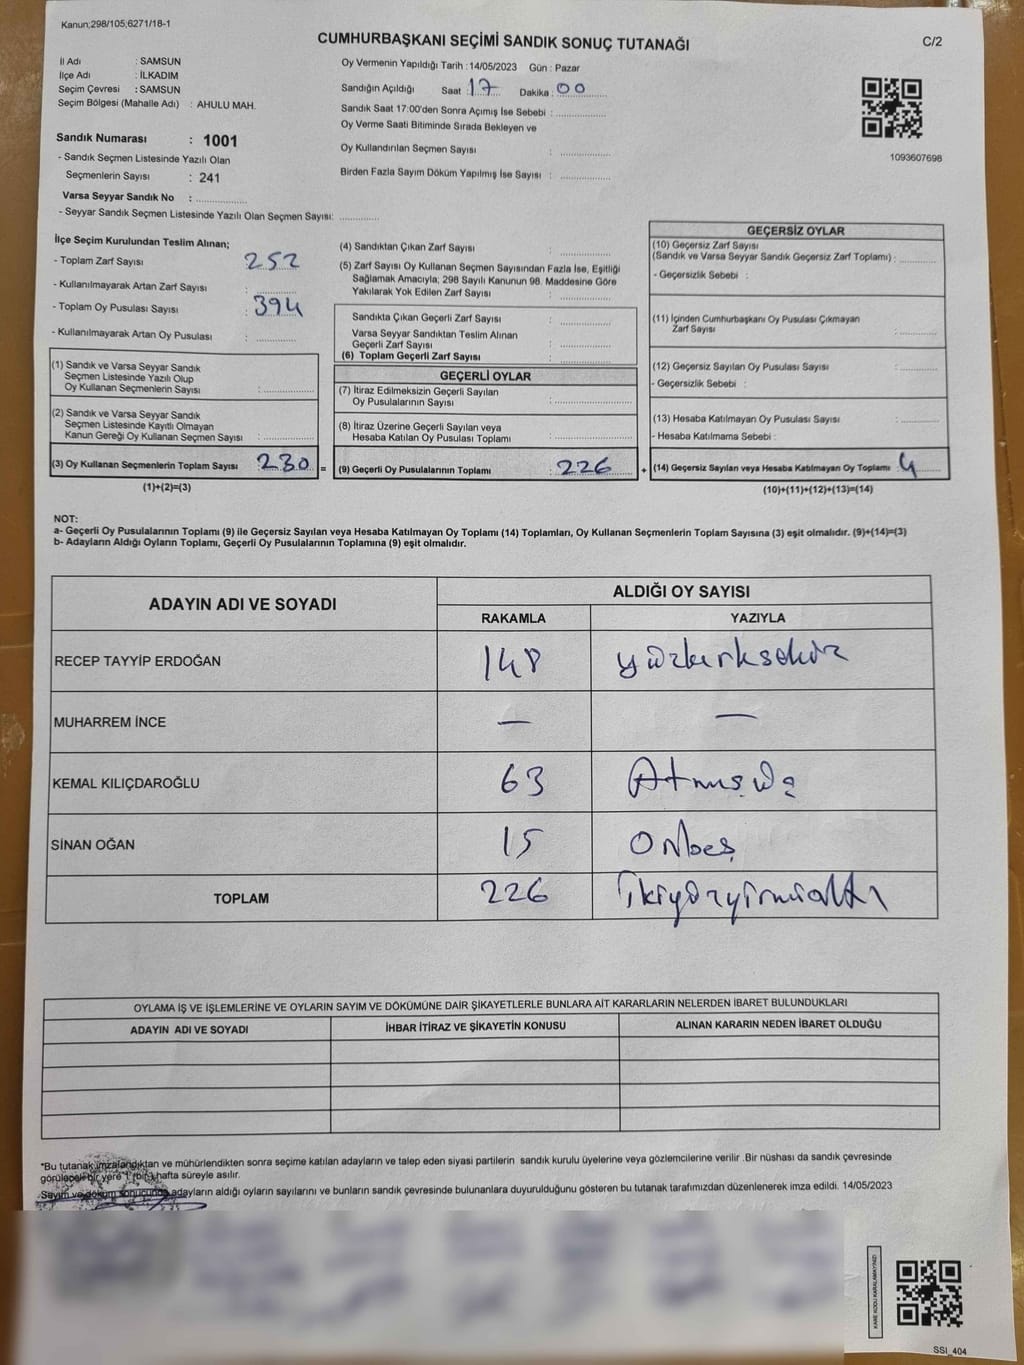 Kanun;298/105;6271/18-1
CUMHURBAŞKANI SEÇİMİ SANDIK SONUÇ TUTANAĞI
C/2
İl Adı : SAMSUN
İlçe Adı : İLKADIM
Seçim Çevresi : SAMSUN
Seçim Bölgesi (Mahalle Adı) : AHULU MAH.
Sandık Numarası : 1001
- Sandık Seçmen Listesinde Yazılı Olan
Seçmenlerin Sayısı : 241
Varsa Seyyar Sandık No :
- Seyyar Sandık Seçmen Listesinde Yazılı Olan Seçmen Sayısı:
Oy Vermenin Yapıldığı Tarih : 14/05/2023 Gün : Pazar
Sandığın Açıldığı Saat 17 Dakika : 00
Sandık Saat 17:00'den Sonra Açımış İse Sebebi :
Oy Verme Saati Bitiminde Sırada Bekleyen ve
Oy Kullandırılan Seçmen Sayısı :
Birden Fazla Sayım Döküm Yapılmış İse Sayısı :
1093607698
İlçe Seçim Kurulundan Teslim Alınan;
- Toplam Zarf Sayısı : 252
- Kullanılmayarak Artan Zarf Sayısı :
- Toplam Oy Pusulası Sayısı : 394
- Kullanılmayarak Artan Oy Pusulası :
(1) Sandık ve Varsa Seyyar Sandık
Seçmen Listesinde Yazılı Olup
Oy Kullanan Seçmenlerin Sayısı :
(2) Sandık ve Varsa Seyyar Sandık
Seçmen Listesinde Kayıtlı Olmayan
Kanun Gereği Oy Kullanan Seçmen Sayısı :
(3) Oy Kullanan Seçmenlerin Toplam Sayısı : 230 =
(1)+(2)=(3)
(4) Sandıktan Çıkan Zarf Sayısı :
(5) Zarf Sayısı Oy Kullanan Seçmen Sayısından Fazla İse, Eşitliği
Sağlamak Amacıyla; 298 Sayılı Kanunun 98. Maddesine Göre
Yakılarak Yok Edilen Zarf Sayısı :
Sandıkta Çıkan Geçerli Zarf Sayısı :
Varsa Seyyar Sandıktan Teslim Alınan
Geçerli Zarf Sayısı :
(6) Toplam Geçerli Zarf Sayısı :
GEÇERLİ OYLAR
(7) İtiraz Edilmeksizin Geçerli Sayılan
Oy Pusulalarının Sayısı :
(8) İtiraz Üzerine Geçerli Sayılan veya
Hesaba Katılan Oy Pusulası Toplamı :
(9) Geçerli Oy Pusulalarının Toplamı : 226 +
GEÇERSİZ OYLAR
(10) Geçersiz Zarf Sayısı
(Sandık ve Varsa Seyyar Sandık Geçersiz Zarf Toplamı) :
- Geçersizlik Sebebi :
(11) İçinden Cumhurbaşkanı Oy Pusulası Çıkmayan
Zarf Sayısı :
(12) Geçersiz Sayılan Oy Pusulası Sayısı :
- Geçersizlik Sebebi :
(13) Hesaba Katılmayan Oy Pusulası Sayısı :
- Hesaba Katılmama Sebebi :
(14) Geçersiz Sayılan veya Hesaba Katılmayan Oy Toplamı : 4
(10)+(11)+(12)+(13)=(14)
NOT:
a- Geçerli Oy Pusulalarının Toplamı (9) ile Geçersiz Sayılan veya Hesaba Katılmayan Oy Toplamı (14) Toplamları, Oy Kullanan Seçmenlerin Toplam Sayısına (3) eşit olmalıdır. (9)+(14)=(3)
b- Adayların Aldığı Oyların Toplamı, Geçerli Oy Pusulalarının Toplamına (9) eşit olmalıdır.
ADAYIN ADI VE SOYADI
ALDIĞI OY SAYISI
RAKAMLA YAZIYLA
RECEP TAYYİP ERDOĞAN 148 yüzkırksekiz
MUHARREM İNCE — —
KEMAL KILIÇDAROĞLU 63 Atmışüç
SİNAN OĞAN 15 Onbeş
TOPLAM 226 İkiyüzyirmialtı
OYLAMA İŞ VE İŞLEMLERİNE VE OYLARIN SAYIM VE DÖKÜMÜNE DAİR ŞİKAYETLERLE BUNLARA AİT KARARLARIN NELERDEN İBARET BULUNDUKLARI
ADAYIN ADI VE SOYADI İHBAR İTİRAZ VE ŞİKAYETİN KONUSU ALINAN KARARIN NEDEN İBARET OLDUĞU
*Bu tutanak imzalandıktan ve mühürlendikten sonra seçime katılan adayların ve talep eden siyasi partilerin sandık kurulu üyelerine veya gözlemcilerine verilir .Bir nüshası da sandık çevresinde
görülecek bir yere 1 (bir) hafta süreyle asılır.
Sayım ve döküm sonucunda adayların aldığı oyların sayılarını ve bunların sandık çevresinde bulunanlara duyurulduğunu gösteren bu tutanak tarafımızdan düzenlenerek imza edildi. 14/05/2023
KARE KODU KARALAMAYINIZ!
SSI_404